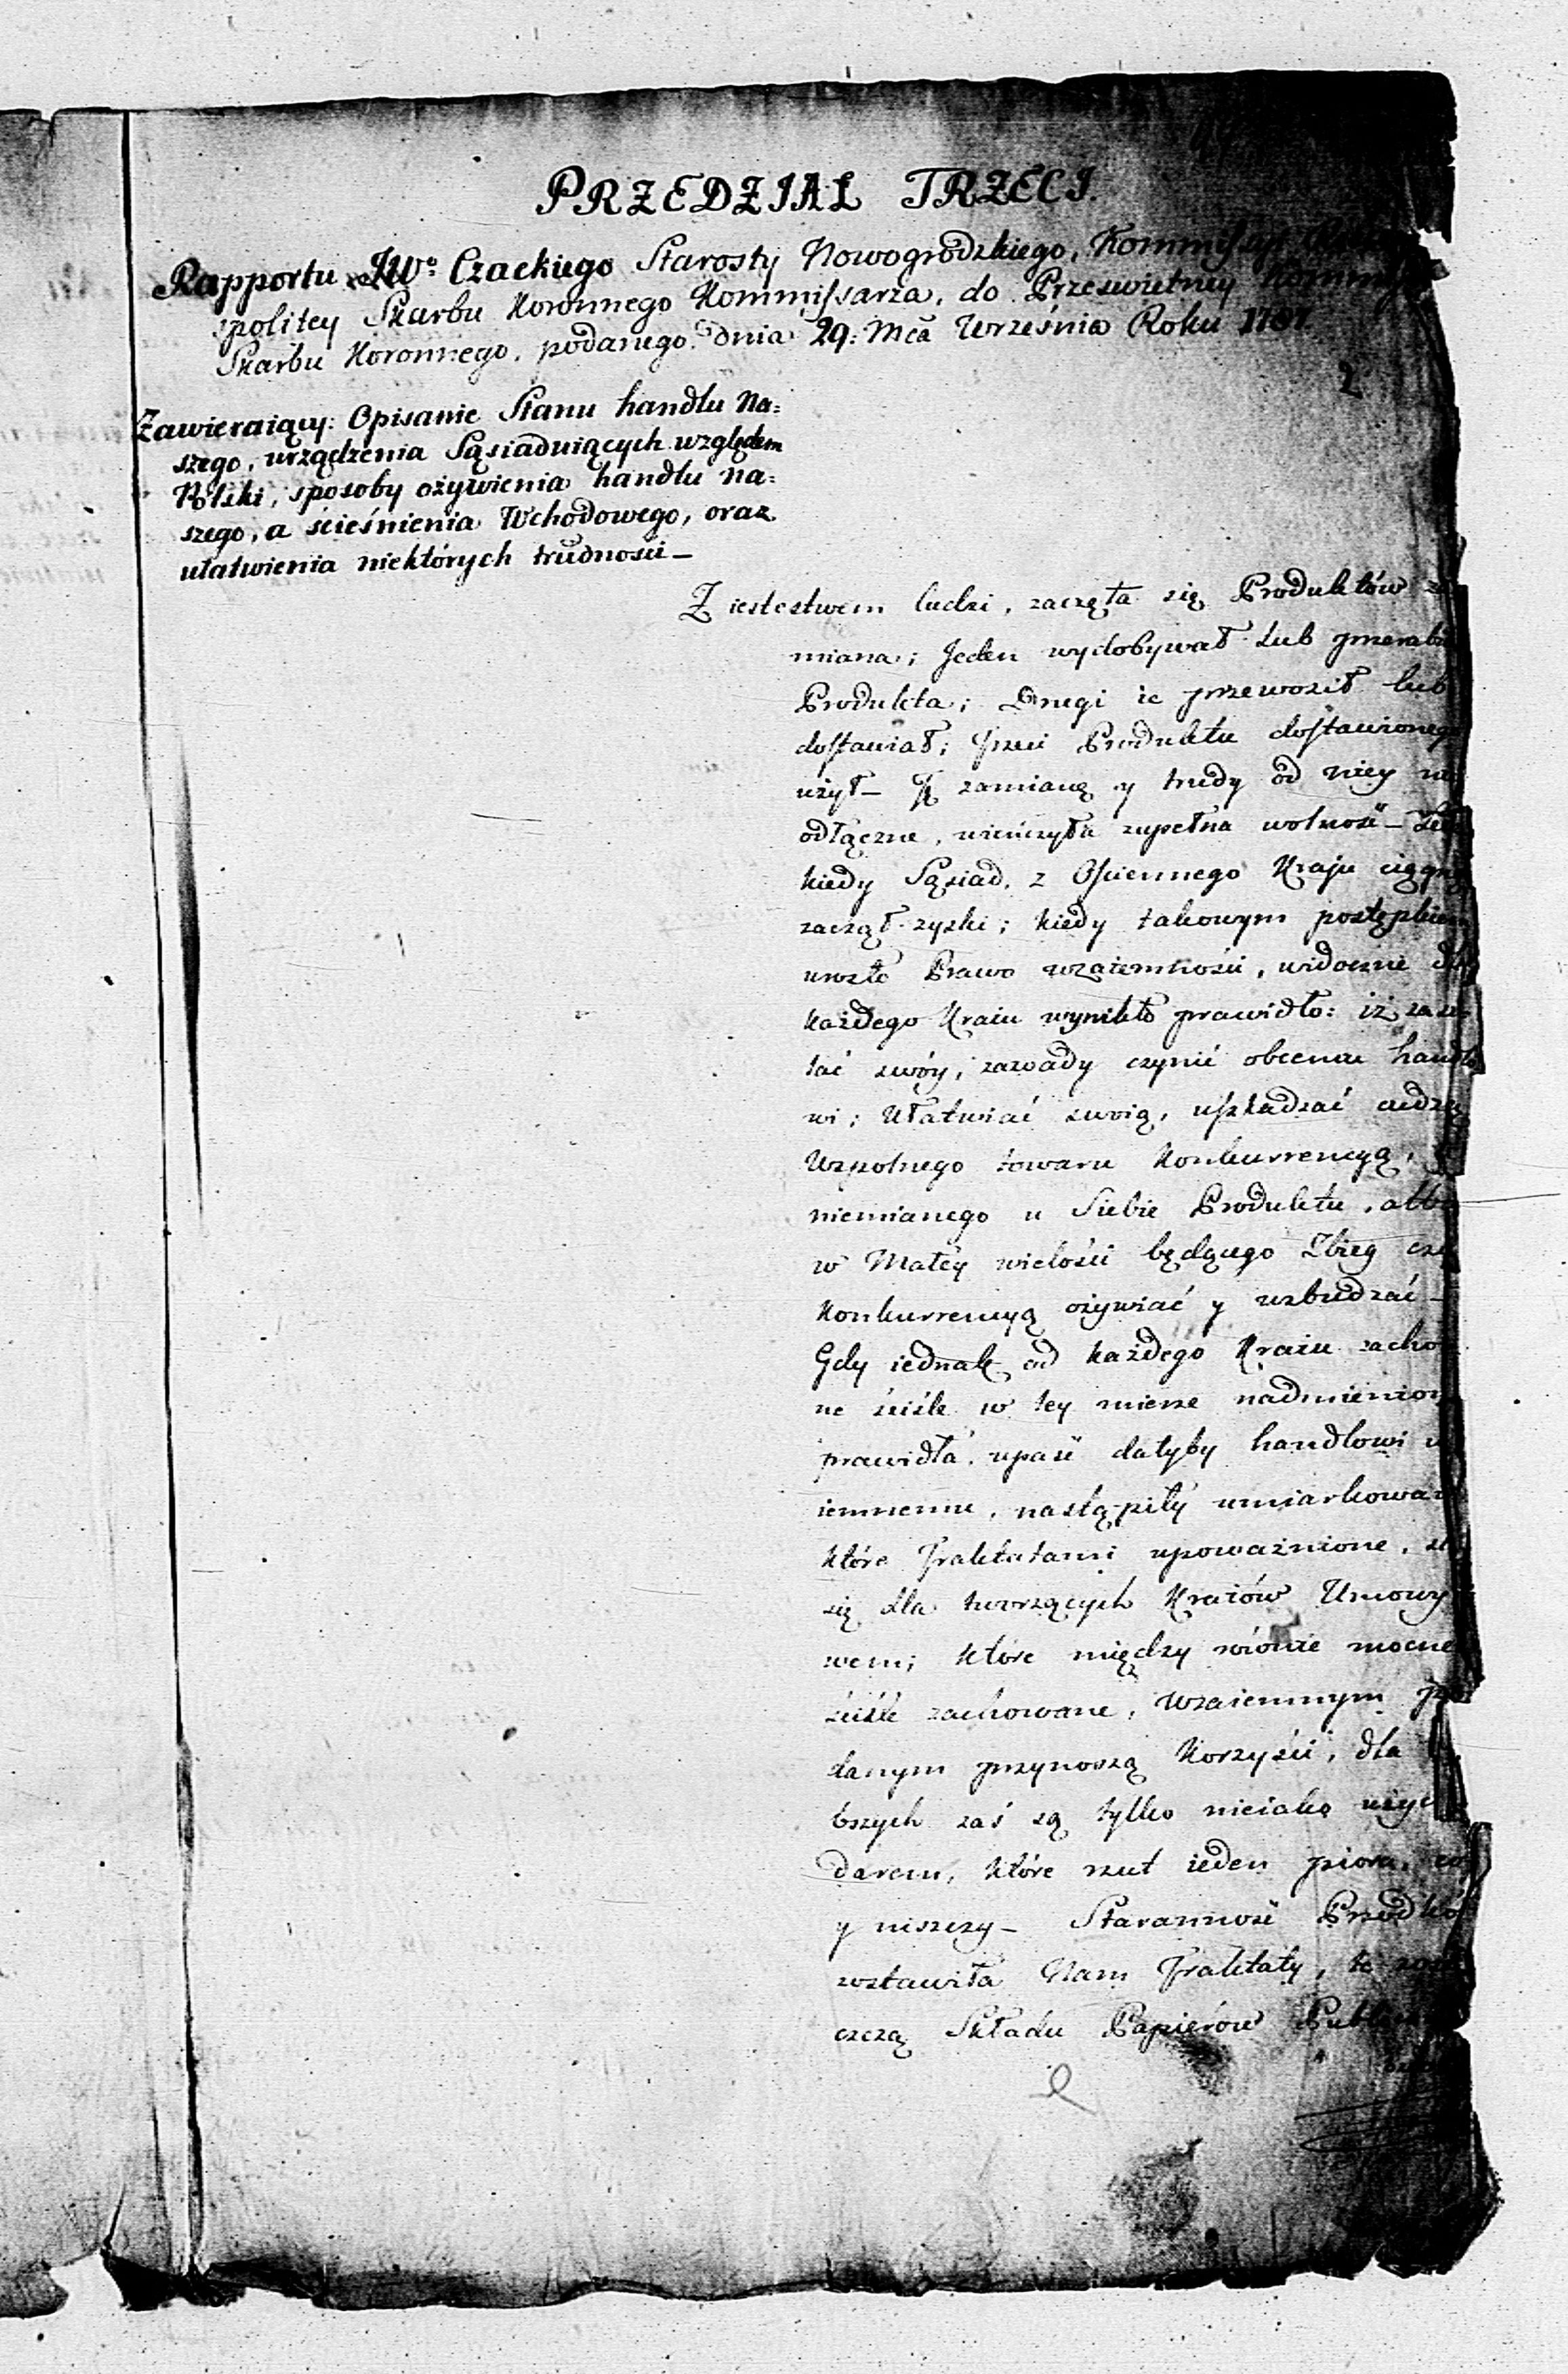 PRZEDZIAŁ TRZECI.
Rapportu JWo. Czackiego Starosty Nowogrodzkiego,
spolitey Skarbu Koronnego Kommissarza, do Przeswietney
Skarbu Koronnego, podanego dnia 29: Mca Września Roku 1787.
2
Zawieraiący: Opisanie Stanu handlu Na=
szego, urządzenia Sąsiaduiących względem
Polski, sposoby ożywienia handlu Na=
szego, a ścieśnienia Wchodowego, oraz
ułatwienia niektórych trudności —
Z iestestwem ludzi, zaczęła się Produktów za
miana; Jeden wydobywał lub przerabia
Produkta; Drugi ie przewoził lub
dostawiał; Trzeci Produktu dostawionego
użył — Tę zamianę y trudy od niey nie
odłączne, wieńczyła zupełna wolność —
kiedy Sąsiad, z Ościennego Kraju ciągną
zaczął zyski; kiedy takowym postępkiem
urosło Prawo wzaiemności, widocznie dla
każdego Kraiu wynikło prawidło: iż
swóy, zawady czynić obcemu handlo
wi; Ułatwiać swoią, uszkadzać cudzą
Wspolnego towaru Konkurrencyą,
niemianego u Siebie Produktu, albo
w Małey wielości będącego Zbieg czy
Konkurrencyą ożywiać y wzbudzać —
Gdy iednak od każdego Kraiu zacho
ne ściśle w tey mierze nadmienion
prawidła, upaść dałyby handlowi
iemnemu, nastąpiły umiarkowan
które Traktatami upoważnione,
się dla tworzących Kraiów Umowy
wem; które między równie mocne
ściśle zachowane, wzaiemnym
danym przynoszą Korzyści, dla
bszych zaś są tylko nieiako
darem, które rzut ieden piora,
y niszczy — Staranność Przodkó
zostawiła Nam Traktaty, te
czczą Składu Papierów